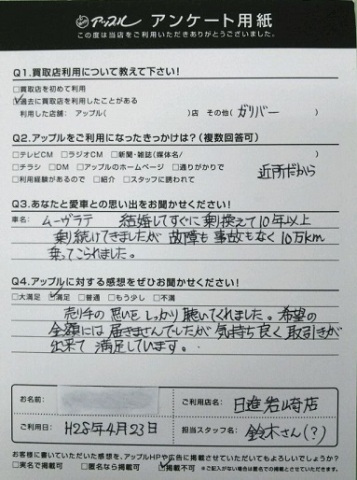 アップル アンケート用紙
この度は当店をご利用いただきありがとうございました。
Q1.買取店利用について教えて下さい!
□買取店を初めて利用
☑過去に買取店を利用したことがある
利用した店舗: アップル( )店 その他( ガリバー )
Q2.アップルをご利用になったきっかけは?(複数回答可)
□テレビCM □ラジオCM □新聞・雑誌(媒体名/ )
□チラシ □DM □アップルのホームページ □通りがかりで 近所だから
□利用経験があるので □紹介 □スタッフに誘われて
Q3.あなたと愛車との思い出をお聞かせください!
車名: ムーヴラテ 結婚してすぐに乗換えて10年以上
乗り続けてきましたが 故障も事故もなく10万km
乗ってこられました。
Q4.アップルに対する感想をぜひお聞かせください!
□大満足 ☑満足 □普通 □もう少し □不満
売り手の思いをしっかり聴いてくれました。希望の
金額には届きませんでしたが 気持ち良く取引きが
出来て 満足しています。
お名前:
ご利用店名: 日進岩崎店
ご利用日: H28年4月23日
担当スタッフ名: 鈴木さん(?)
お客様に書いていただいた感想を、アップルHPや広告に掲載させていただいてもよろしいでしょうか?
□実名で掲載可 □匿名なら掲載可 ☑掲載不可 ※ご記入がない場合は匿名での掲載とさせていただきます。